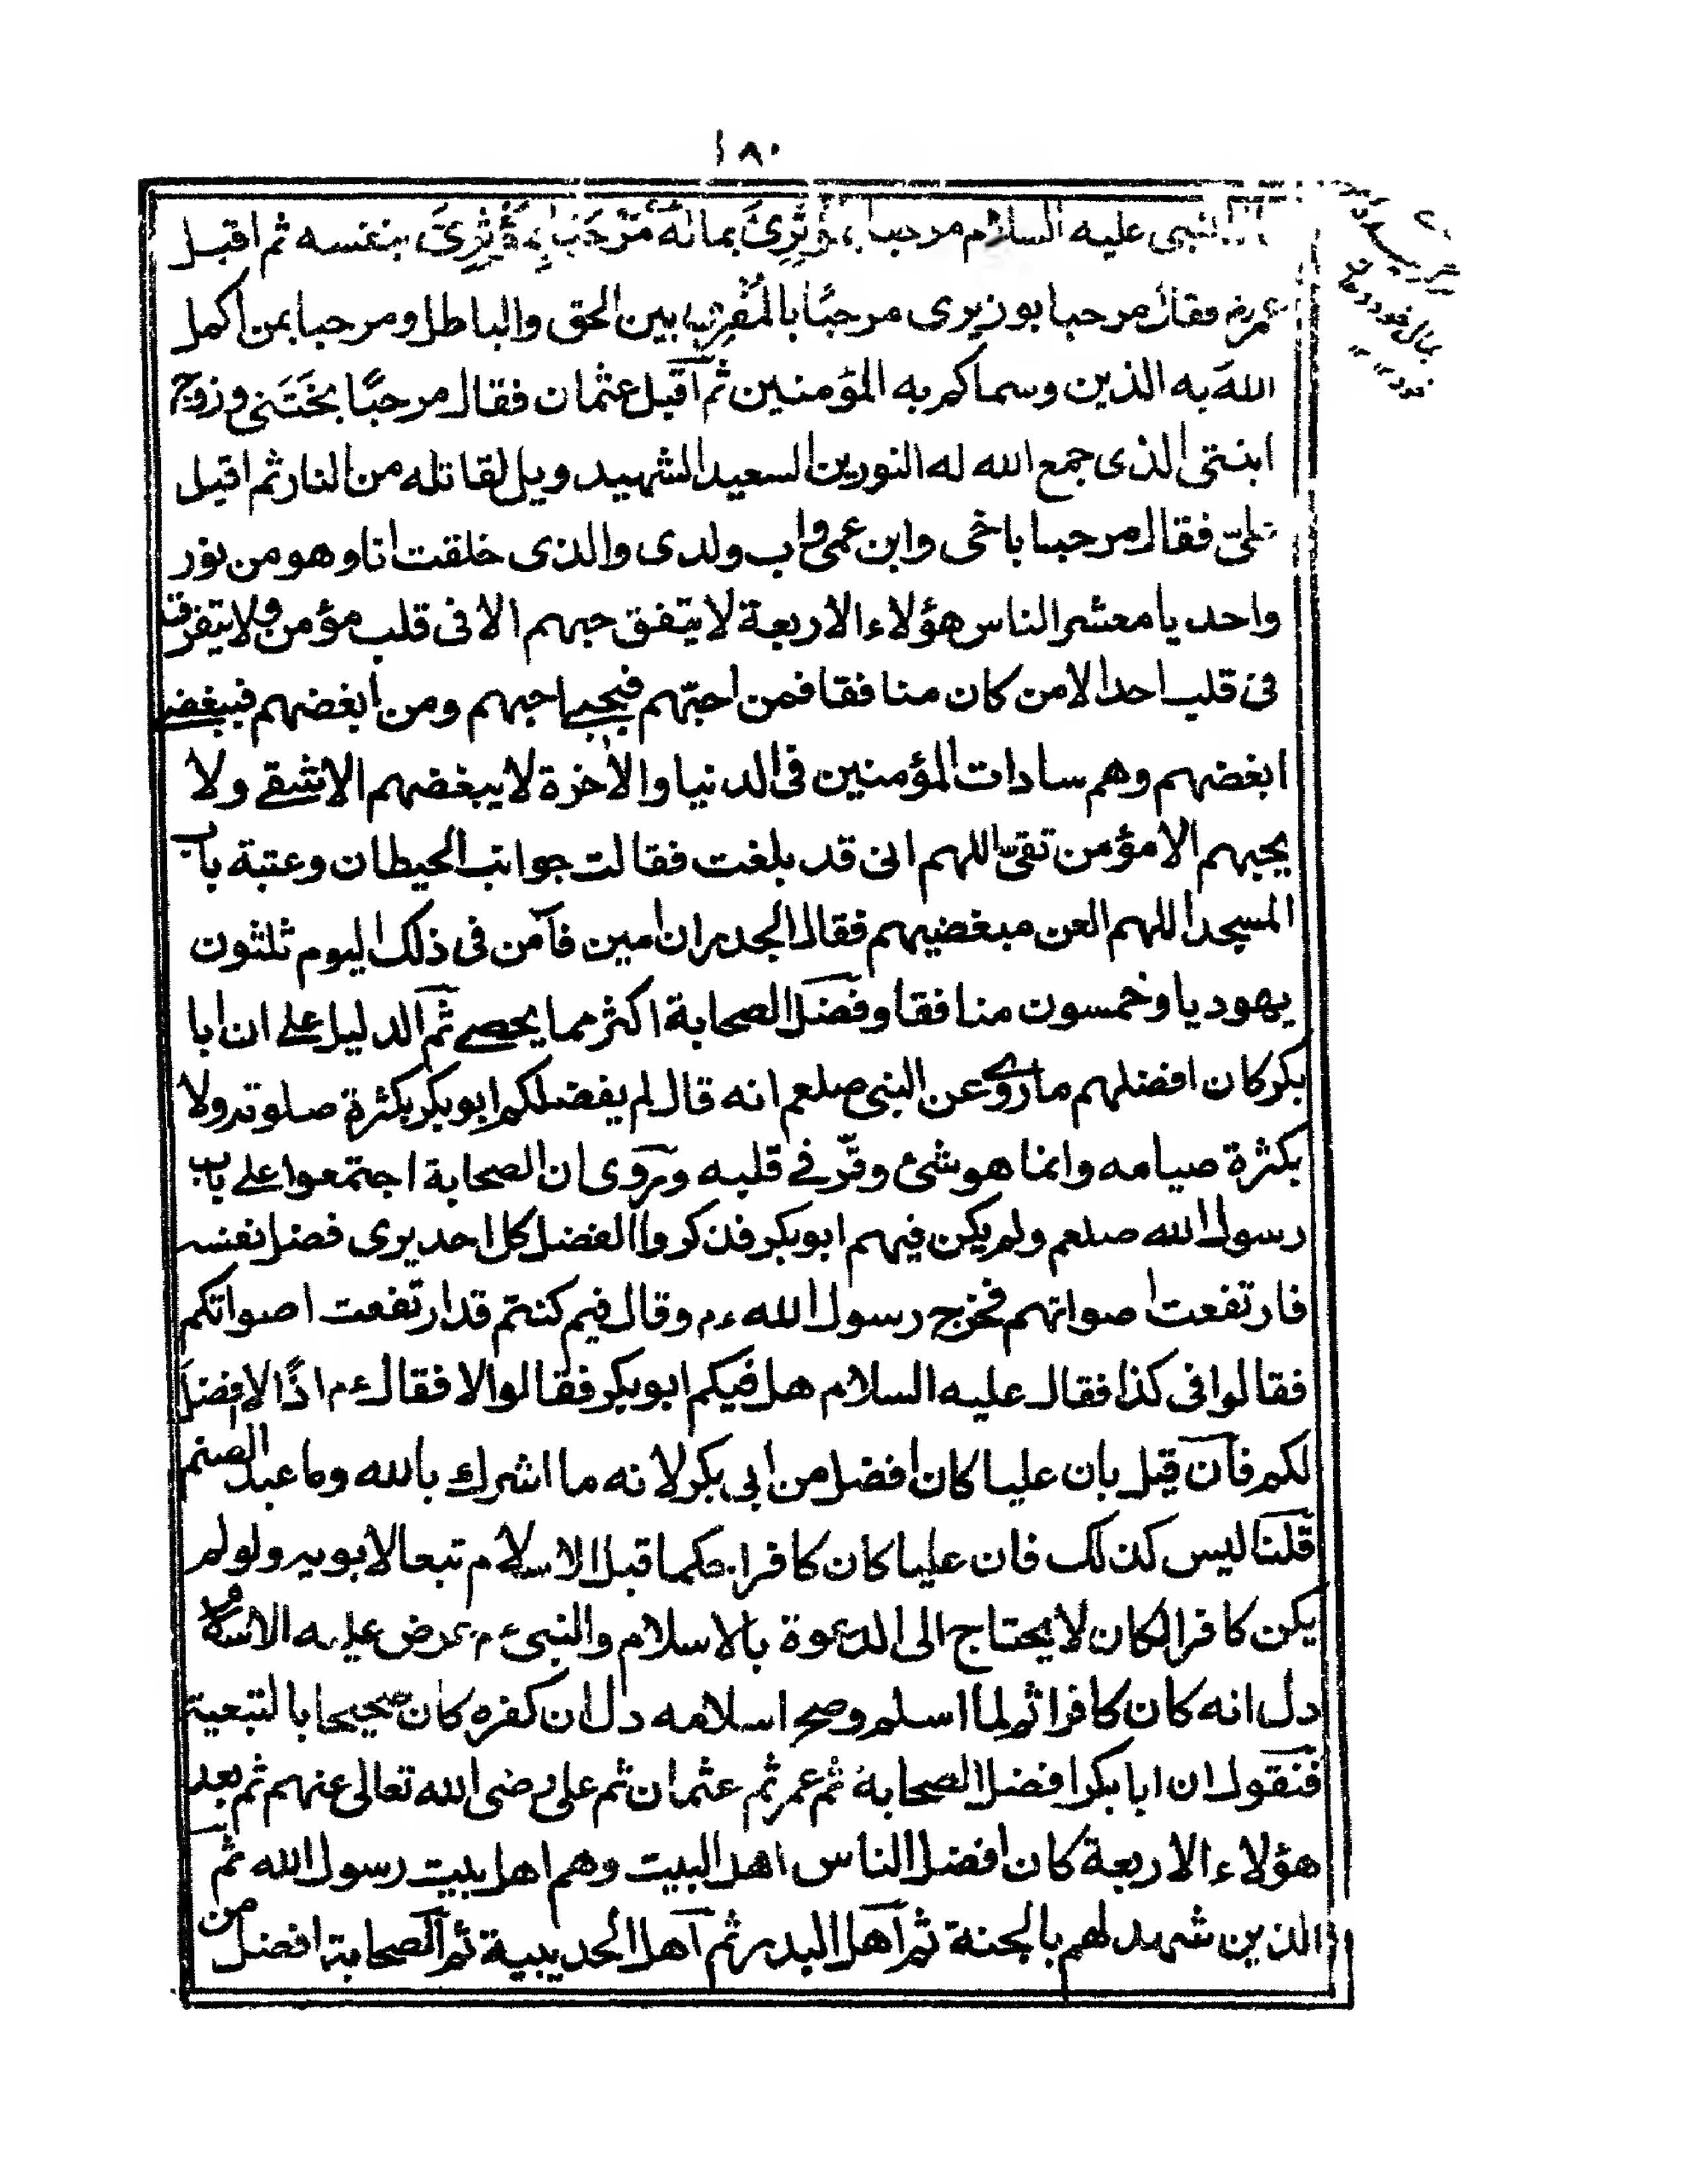 ١٨٠
النبى عليه السلام مرحبا بمؤثرىَ بماله مَرْحَبًا بِمُؤْثِرِىَ بنفسه ثم اقبل
عمررض فقال مرحبا بوزيرى مرحبًا بالمُفَرِّق بين الحق والباطل ومرحبا بمن اكمل
اللهَ به الذين وسماكم به المؤمنين ثم اقبل عثمان فقال مرحبًا بخَتَنى وزوج
ابنتى الذى جمع الله له النورين السعيد الشهيد ويل لقاتله من النار ثم اقبل
علىّ فقال مرحبا باخى وابن عمى واب ولدى والذى خلقت انا وهو من نور
واحد يا معشر الناس هؤلاء الاربعة لا يتفق حبهم الا فى قلب مؤمن ولا يتفرق
فى قلب احد الا من كان منافقا فمن احبّهم فبحبى احبهم ومن ابغضهم فببغضى
ابغضهم وهم سادات المؤمنين فى الدنيا والاخرة لا يبغضهم الا شقى ولا
يحبهم الا مؤمن تقىّ اللهم انى قد بلغت فقالت جوانب الحيطان وعتبة باب
المسجد اللهم العن مبغضيهم فقال الجدران امين فآمن فى ذلك اليوم ثلثون
يهوديا وخمسون منافقا وفضل الصحابة اكثر مما يحصى ثم الدليل على ان ابا
بكر كان افضلهم ماروى عن النبى صلعم انه قال لم يفضلكم ابو بكر بكثرة صلوته ولا
بكثرة صيامه وانما هو شئ وقّر فى قلبه وروى ان الصحابة اجتمعوا على باب
رسول الله صلعم ولم يكن فيهم ابو بكر فذكروا الفضل كل احد يرى فضل نفسه
فارتفعت اصواتهم فخرج رسول الله ءم وقال فيم كنتم قد ارتفعت اصواتكم
فقالوا فى كذا فقال عليه السلام هل فيكم ابو بكر فقالوا لا فقال ءم اذًا لا افضل
لكم فان قيل بان عليا كان افضل من ابى بكر لانه ما اشرك بالله وما عبد الصنم
قلنا ليس كذلك فان عليا كان كافرا حكما قبل الاسلام تبعا لابويه ولو لم
يكن كافرا لكان لا يحتاج الى الدعوة بالاسلام والنبى ءم عرض عليه الاسلام
دل انه كان كافرا ثم لما اسلم وصح اسلامه دل ان كفره كان صحيحا بالتبعية
فنقول ان ابا بكر افضل الصحابة ثم عمر ثم عثمان ثم على رضى الله تعالى عنهم ثم بعد
هؤلاء الاربعة كان افضل الناس اهل البيت وهم اهل بيت رسول الله ثم
الذين شهد لهم بالجنة ثم اهل البدر ثم اهل الحديبية ثم الصحابة افضل من